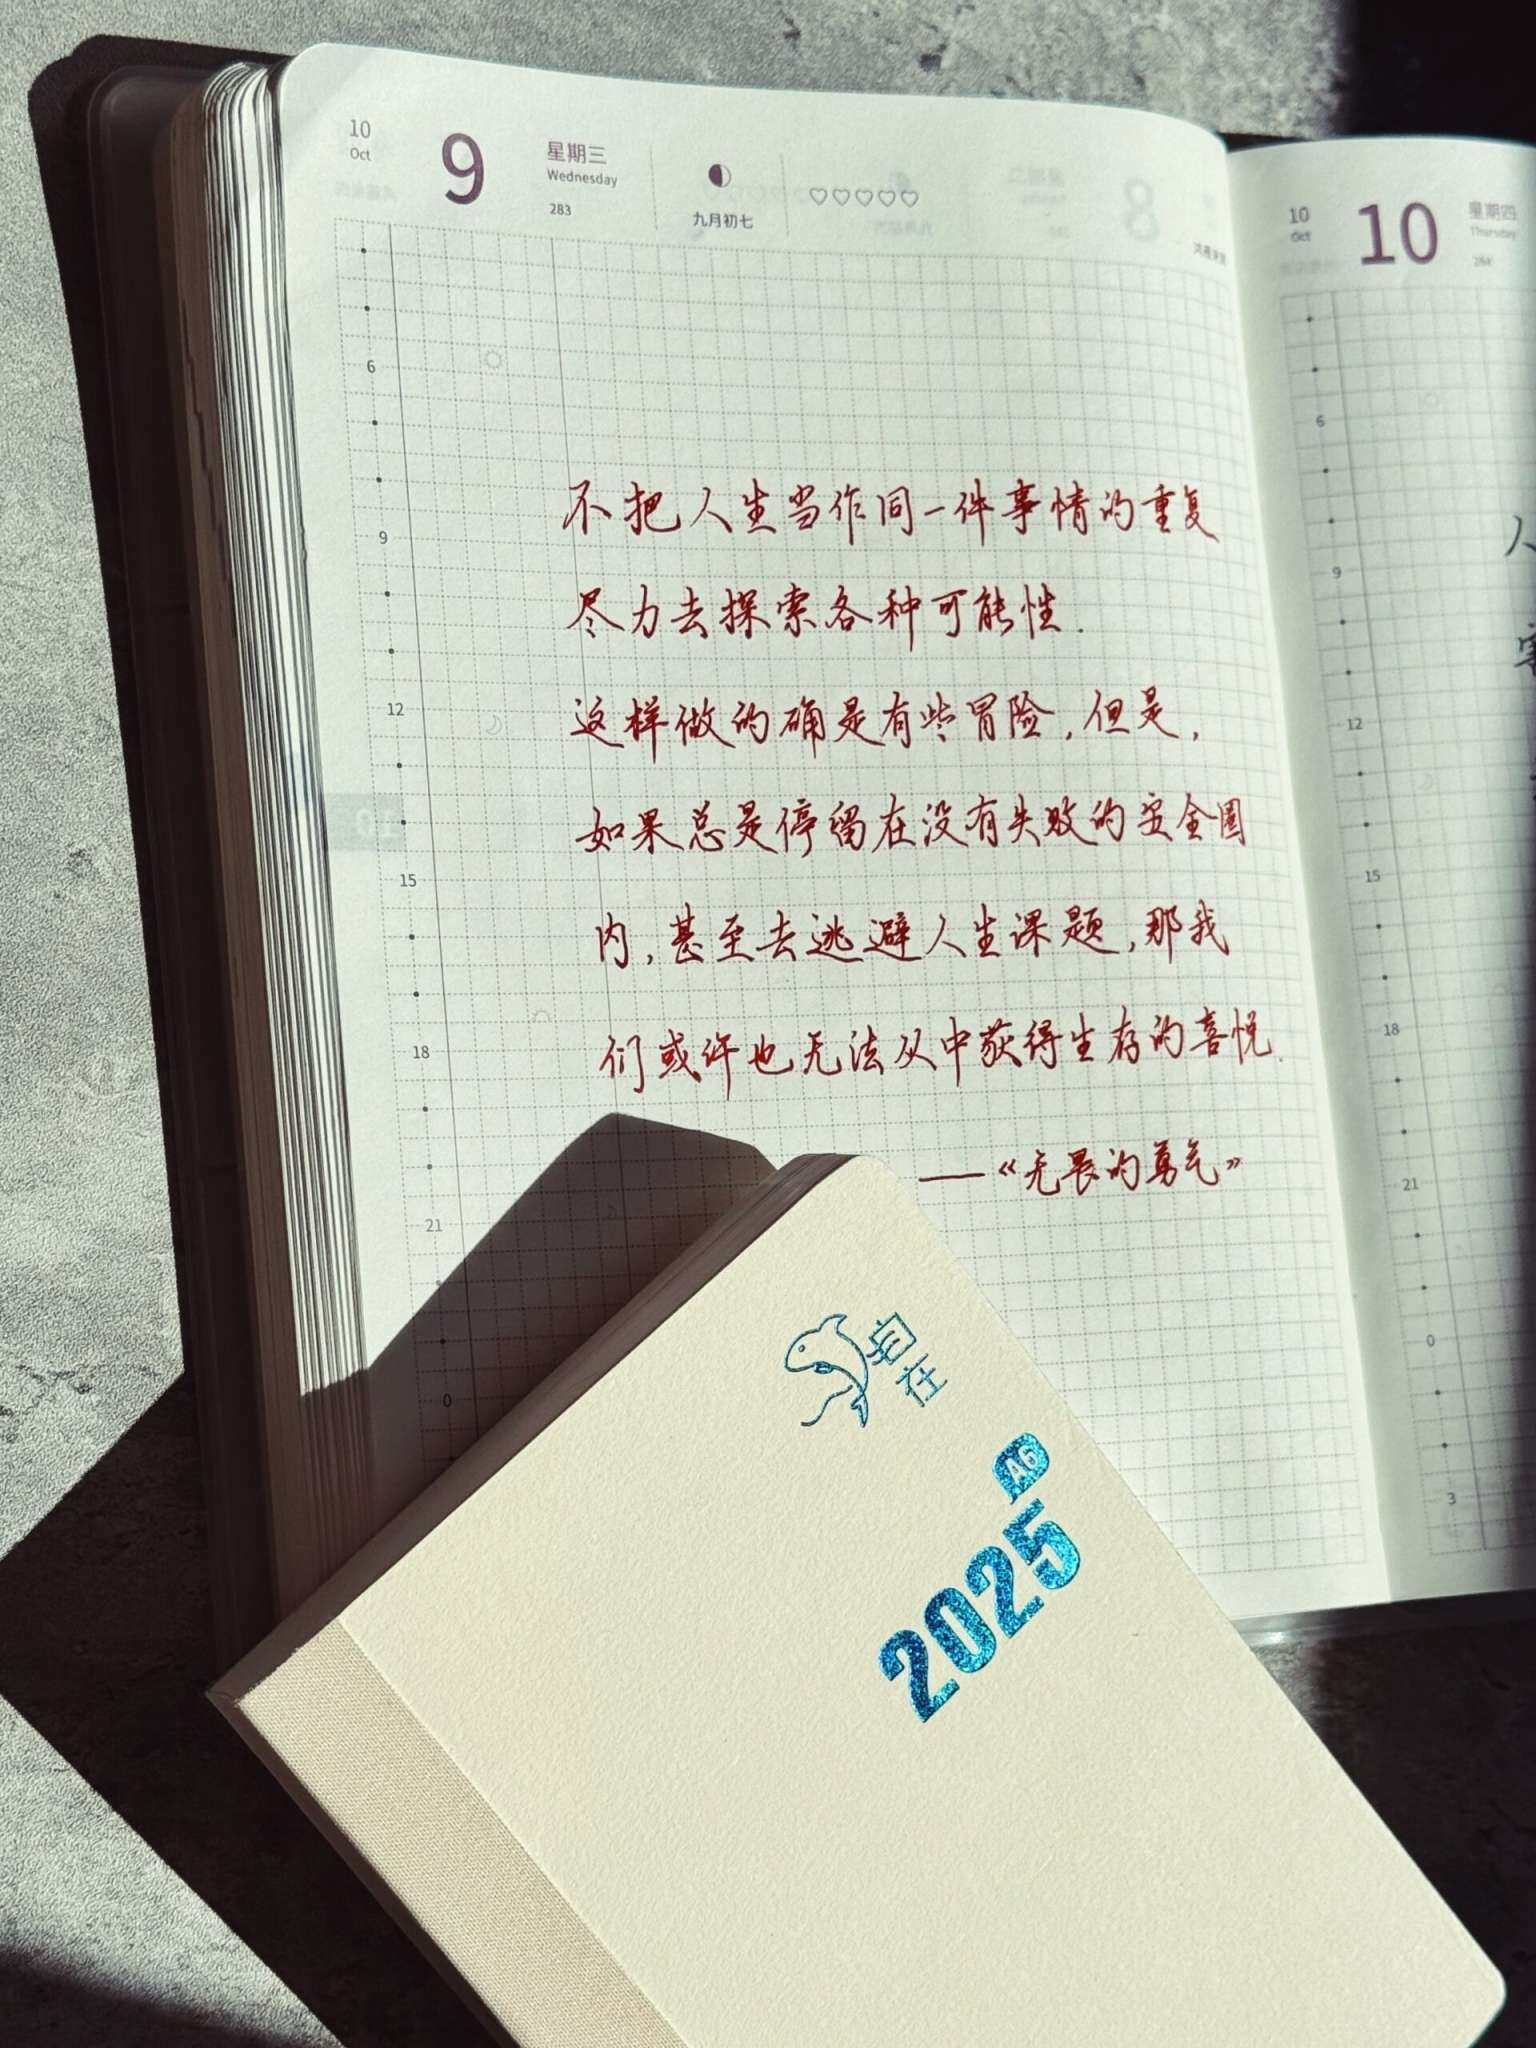 10
Oct
9
星期三
Wednesday
283
九月初七
♡♡♡♡♡
6
9
12
15
18
21
0
不把人生当作同一件事情的重复
尽力去探索各种可能性.
这样做的确是有些冒险,但是,
如果总是停留在没有失败的安全圈
内,甚至去逃避人生课题,那我
们或许也无法从中获得生存的喜悦.
——《无畏的勇气》
10
Oct
10
星期四
Thursday
284
6
9
12
15
18
21
0
3
人
自在
A6
2025